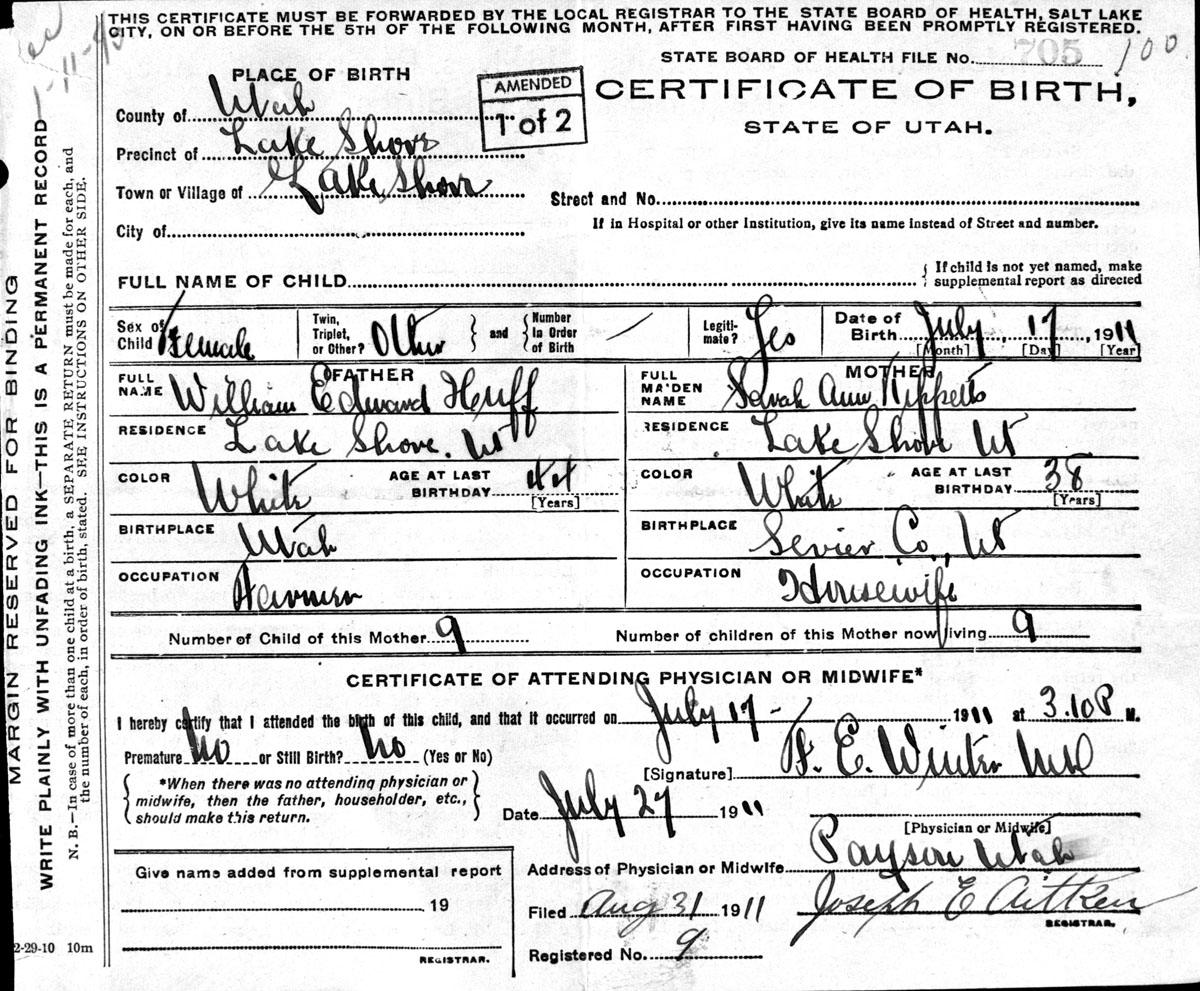 THIS CERTIFICATE MUST BE FORWARDED BY THE LOCAL REGISTRAR TO THE STATE BOARD OF HEALTH, SALT LAKE
CITY, ON OR BEFORE THE 5TH OF THE FOLLOWING MONTH, AFTER FIRST HAVING BEEN PROMPTLY REGISTERED.
STATE BOARD OF HEALTH FILE No. 705 100
PLACE OF BIRTH
AMENDED
1 of 2
CERTIFICATE OF BIRTH,
STATE OF UTAH.
County of Utah
Precinct of Lake Shore
Town or Village of Lake Shore
Street and No.
City of
If in Hospital or other Institution, give its name instead of Street and number.
FULL NAME OF CHILD
If child is not yet named, make
supplemental report as directed
Sex of Child Female
Twin, Triplet, or Other? Other
and
Number In Order of Birth
Legiti-mate? Yes
Date of Birth July 17, 1911
[Month] [Day] [Year]
FATHER
FULL NAME William Edward Huff
RESIDENCE Lake Shore. Ut
COLOR White
AGE AT LAST BIRTHDAY 44
[Years]
BIRTHPLACE Utah
OCCUPATION Farmer
MOTHER
FULL MAIDEN NAME Sarah Ann Tippetts
RESIDENCE Lake Shore Ut
COLOR White
AGE AT LAST BIRTHDAY 38
[Years]
BIRTHPLACE Sevier Co., Ut
OCCUPATION Housewife
Number of Child of this Mother 9
Number of children of this Mother now living 9
CERTIFICATE OF ATTENDING PHYSICIAN OR MIDWIFE*
I hereby certify that I attended the birth of this child, and that it occurred on July 17 - 1911 at 3.10 P M.
Premature No or Still Birth? No (Yes or No)
*When there was no attending physician or
midwife, then the father, householder, etc.,
should make this return.
[Signature] E. Winter MD
Date July 27 1911
[Physician or Midwife]
Address of Physician or Midwife Payson Utah
Give name added from supplemental report
19
REGISTRAR.
Filed Aug 31 1911 Joseph E Aitken
REGISTRAR.
Registered No. 9
MARGIN RESERVED FOR BINDING
WRITE PLAINLY WITH UNFADING INK—THIS IS A PERMANENT RECORD
N. B.—In case of more than one child at a birth, a SEPARATE RETURN must be made for each, and
the number of each, in order of birth, stated. SEE INSTRUCTIONS ON OTHER SIDE.
2-29-10 10m